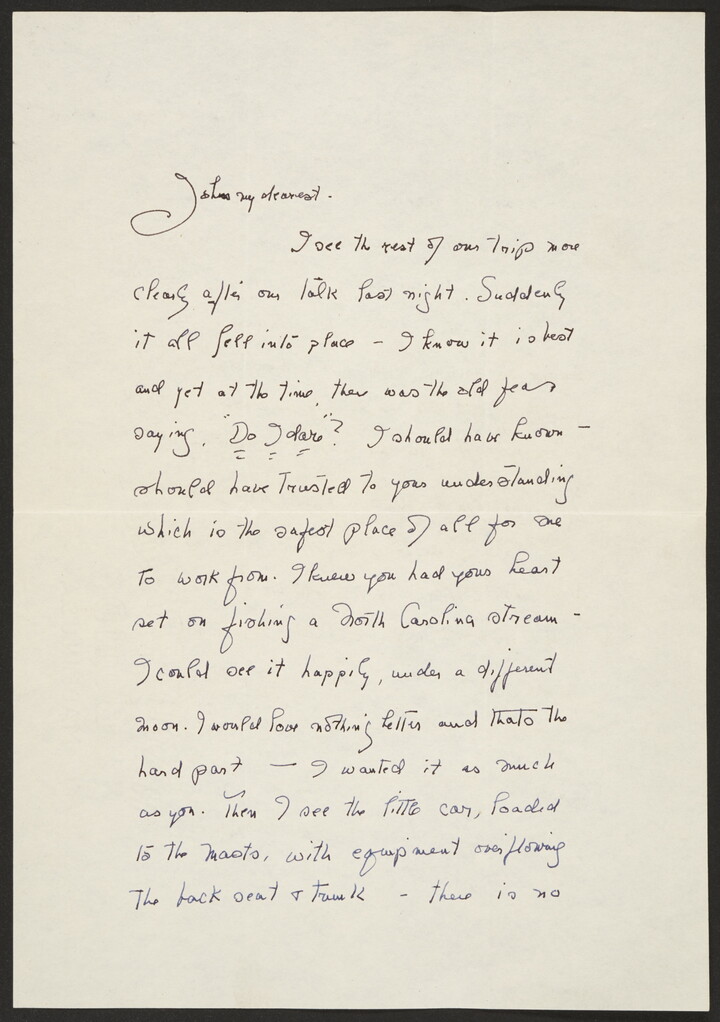 John my dearest.
I see the rest of our trip more
clearly after our talk last night. Suddenly
it all fell into place - I know it is best
and yet at the time, there was the old fear
saying, "Do I dare"? I should have known -
should have trusted to your understanding
which is the safest place of all for me
to work from. I knew you had your heart
set on fishing a North Carolina stream -
I could see it happily, under a different
moon. I would love nothing better and that's the
hard part — I wanted it as much
as you. Then I see the little car, loaded
to the masts, with equipment overflowing
the back seat & trunk - there is no